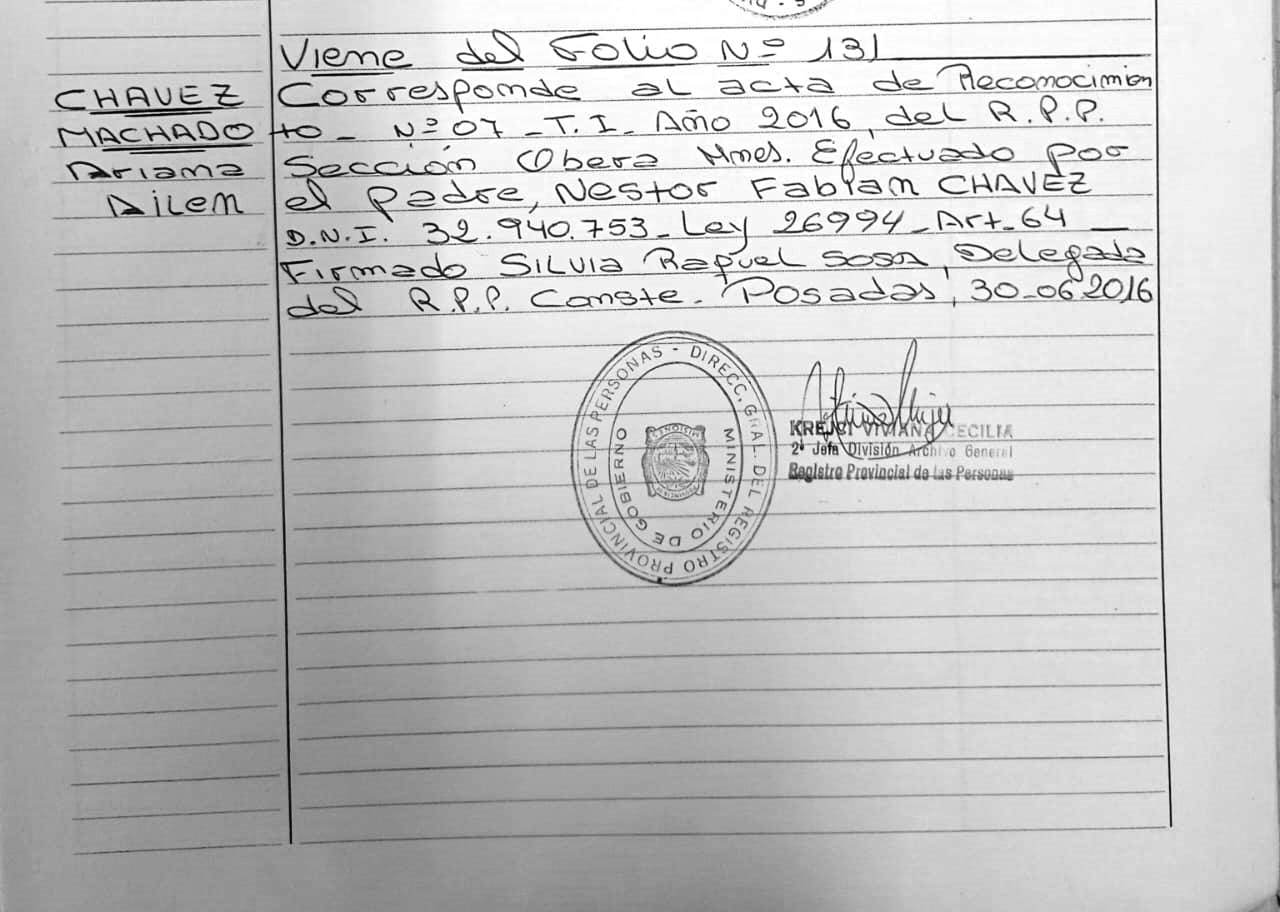 Viene del Folio Nº 131
CHAVEZ
MACHADO
Ariana
Ailen
Corresponde al acta de Reconocimien
to_ Nº 07 _T.I_ Año 2016, del R.P.P.
Sección Obera Mnes. Efectuado por
el padre, Nestor Fabian CHAVEZ
D.N.I. 32.940.753_Ley 26994_Art_64_
Firmado Silvia Raquel Sosa, Delegada
del R.P.P. Conste. Posadas, 30-06 2016
DIRECC. GRAL. DEL REGISTRO PROVINCIAL DE LAS PERSONAS -
MINISTERIO DE GOBIERNO
MISIONES
KREJCI VIVIANA CECILIA
2ª Jefa División Archivo General
Registro Provincial de las Personas